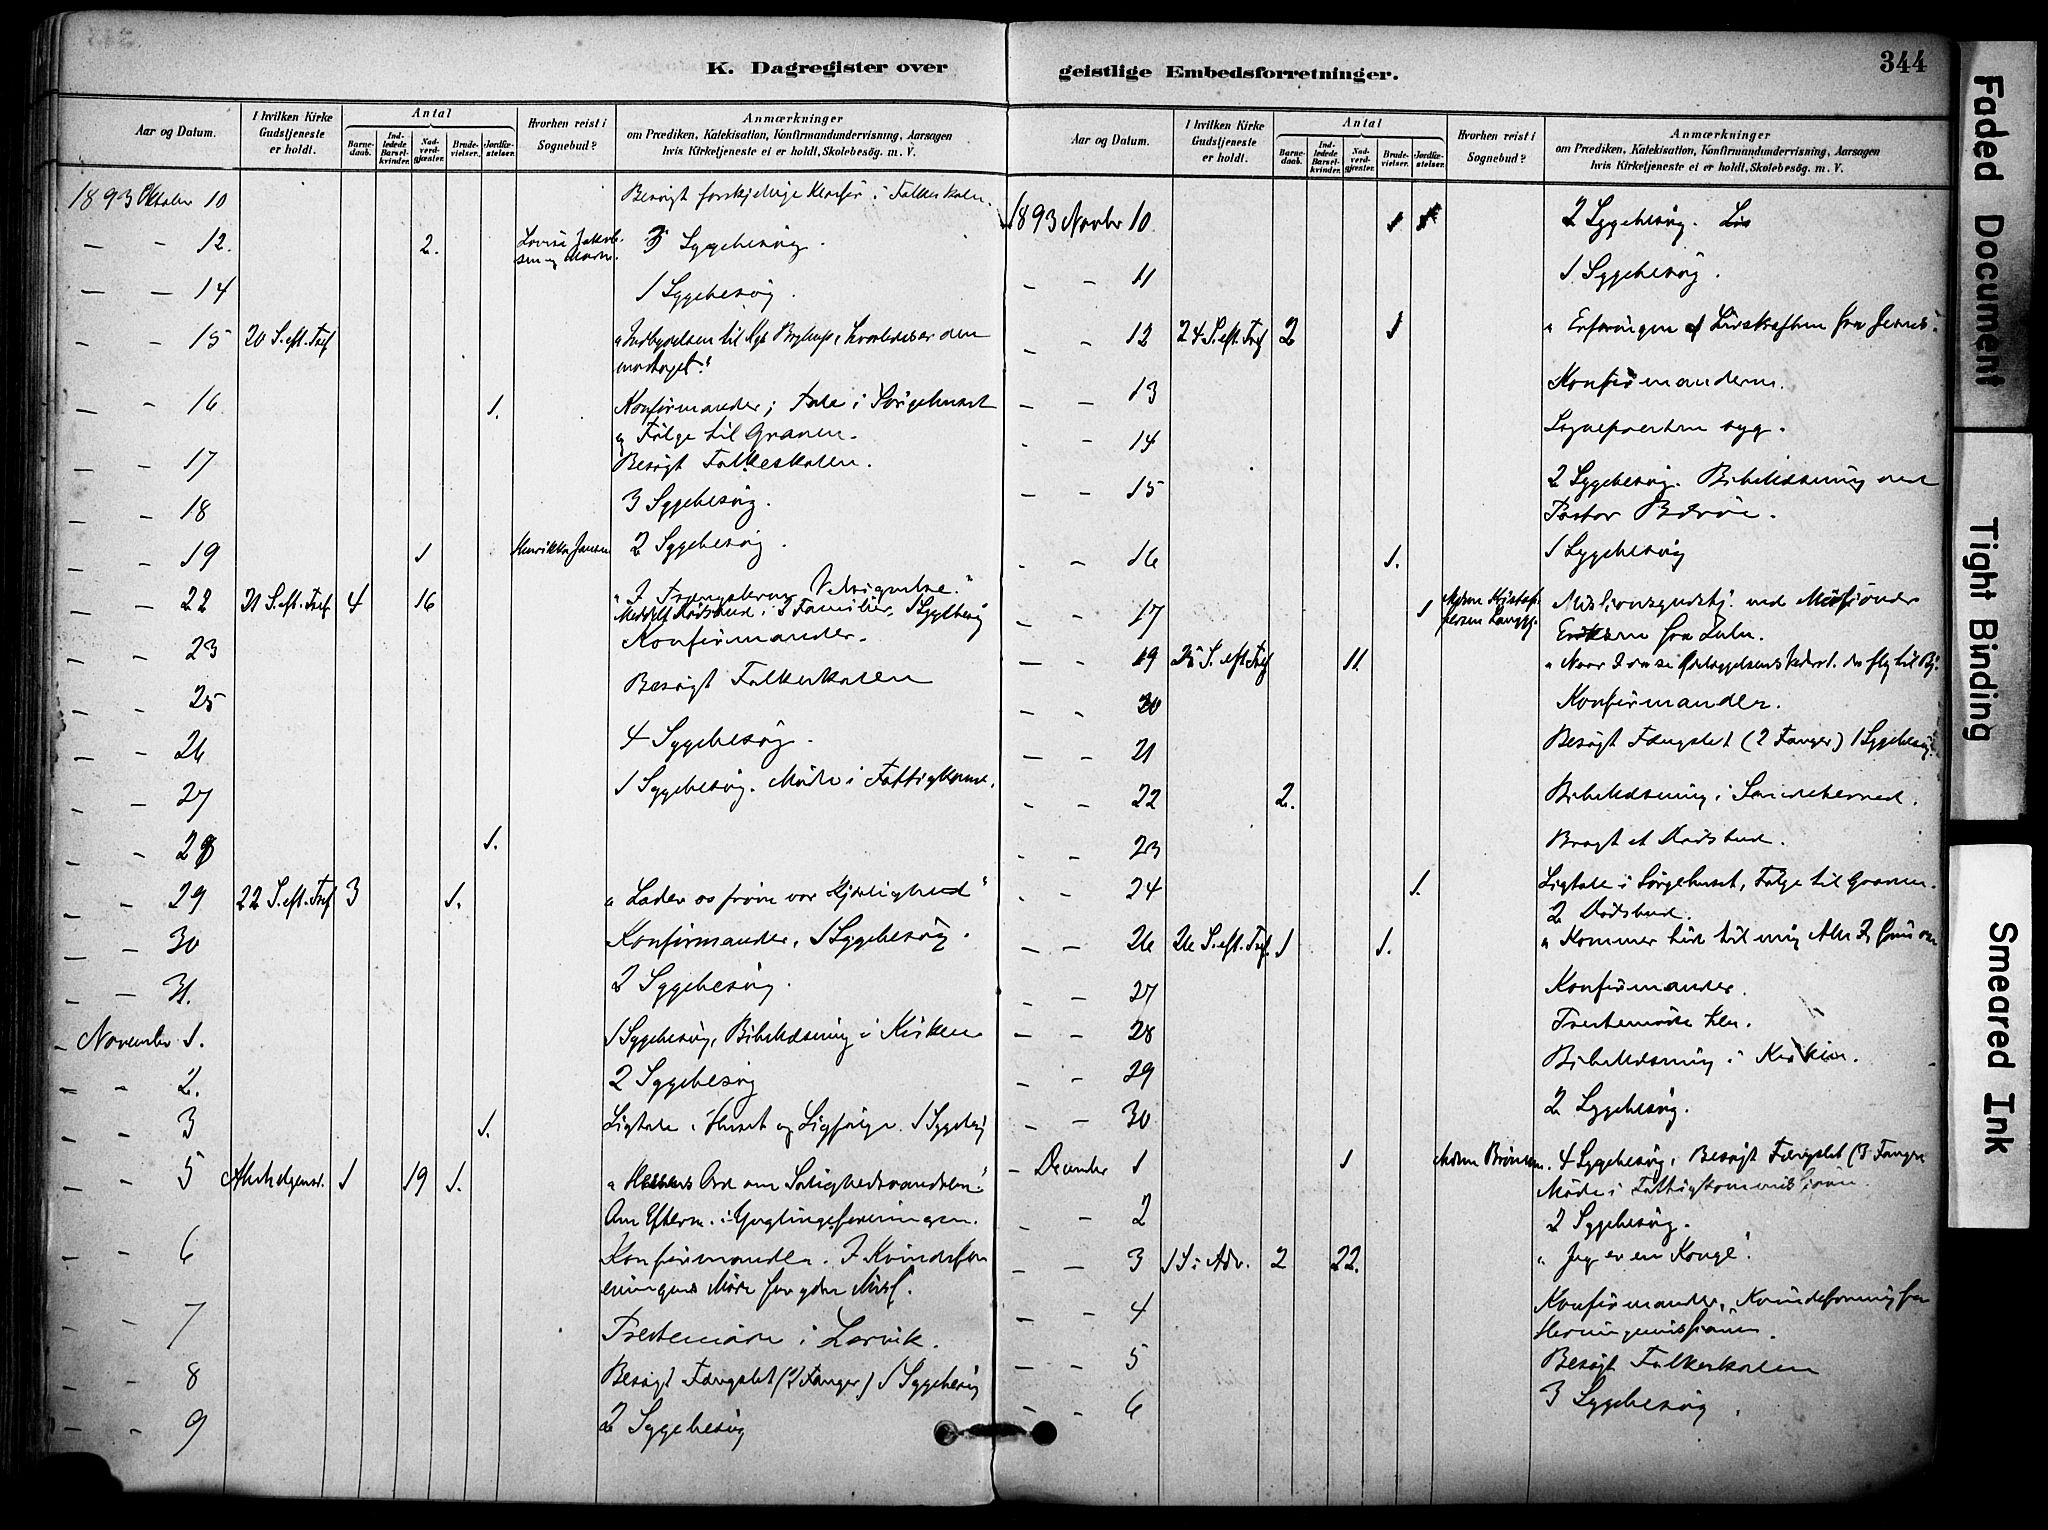 344
K. Dagregister over
Aar og Datum. I hvilken Kirke Gudstjeneste er holdt. Antal Barnedaab. Indledede Barselkvinder. Nadverdgjester. Brudevielser. Jordfæstelser. Hvorhen reist i Sognebud? Anmærkninger om Prædiken, Katekisation, Konfirmandundervisning, Aarsagen hvis Kirketjeneste ei er holdt, Skolebesög. m. V.
1893 Oktober 10 Besøgt forskjellige Klasser i Folkeskolen.
— — 12. 2. 3 Sygebesøg.
— — 14 1 Sygebesøg.
- - 15 20 S. eft. Tref
modtaget."
- - 16 1. Konfirmander; Tale i Sørgehuset
og Følge til Graven.
- - 17 Besøgt Folkeskolen.
- - 18 3 Sygebesøg.
- - 19 1 Henrikka Jansen 2 Sygebesøg.
- - 22 21 S. eft. Tref. 4 16 "I Trængslerne Velsignelse."
Meddelt Dødsbud i 2 Familier, 1 Sygebesøg
- - 23 Konfirmander.
- - 25 Besøgt Folkeskolen
- - 26 4 Sygebesøg.
- - 27 1 Sygebesøg. Møde i Fattigkomm.
- - 28 1.
- - 29 22 S. eft. Tref 3 1. "Lader os prøve vor Kjærlighed"
- - 30 Konfirmander, 1 Sygebesøg.
- - 31. 2 Sygebesøg.
- November 1. 1 Sygebesøg, Bibellæsning i Kirken
- - 2. 2 Sygebesøg
- - 3 1. Ligtale i Huset og Ligfølge. 1 Sygebesøg
- - 5 Allehelgensd. 1 19 1. "Herrens Ord om Salighedsvandelen."
Om Efterm. i Ynglingeforeningen.
- - 6 Konfirmander. I Kvindefor
eningens Møde for ydre Miss.
- - 7 Prestemøde i Larvik.
- - 8 Besøgt Fængslet (2 Fanger) 1 Sygebesøg
- - 9 2 Sygebesøg
geistlige Embedsforretninger.
Aar og Datum. I hvilken Kirke Gudstjeneste er holdt. Antal Barnedaab. Indledede Barselkvinder. Nadverdgjester. Brudevielser. Jordfæstelser. Hvorhen reist i Sognebud? Anmærkninger om Prædiken, Katekisation, Konfirmandundervisning, Aarsagen hvis Kirketjeneste ei er holdt, Skolebesög. m. V.
1893 Novbr 10. 1 2 Sygebesøg.
- - 11 1 Sygebesøg.
- - 12 24 S. eft. Tref 2 1 "Erfaringen af Livskraften fra Jesus."
- - 13 Konfirmanderne.
- - 14 Sognepresten syg.
- - 15 2 Sygebesøg. Bibellæsning ved
Pastor
- - 16 1. 1 Sygebesøg
- - 17 1 Missionsgudstj. ved Missionær
fra Zulu.
- - 19 25 S. eft. Tref 11.
- - 20 Konfirmander.
- - 21 Besøgt Fængslet (2 Fanger) 1 Sygebesøg.
- - 22 2. Bibellæsning i
- - 23 Bragt et Dødsbud.
- - 24 1. Ligtale i Sørgehuset, Følge til Graven.
2 Dødsbud.
- - 26 26 S. eft. Tref. 1 1. "Kommer hid til mig Alle
- - 27 Konfirmander.
- - 28 Prestemøde her.
- - 29 Bibellæsning i Kirken.
- - 30 2 Sygebesøg.
- December 1 1 4 Sygebesøg, Besøgt Fængslet (3 Fanger
Møde i Fattigkommissionen.
- - 2 2 Sygebesøg.
- - 3 1 S i Adv. 2 22. "Jeg er en Konge".
- - 4 Konfirmander, Kvindeforening for
- - 5 Besøgt Folkeskolen
- - 6 3 Sygebesøg.
Faded Document
Tight Binding
Smeared Ink